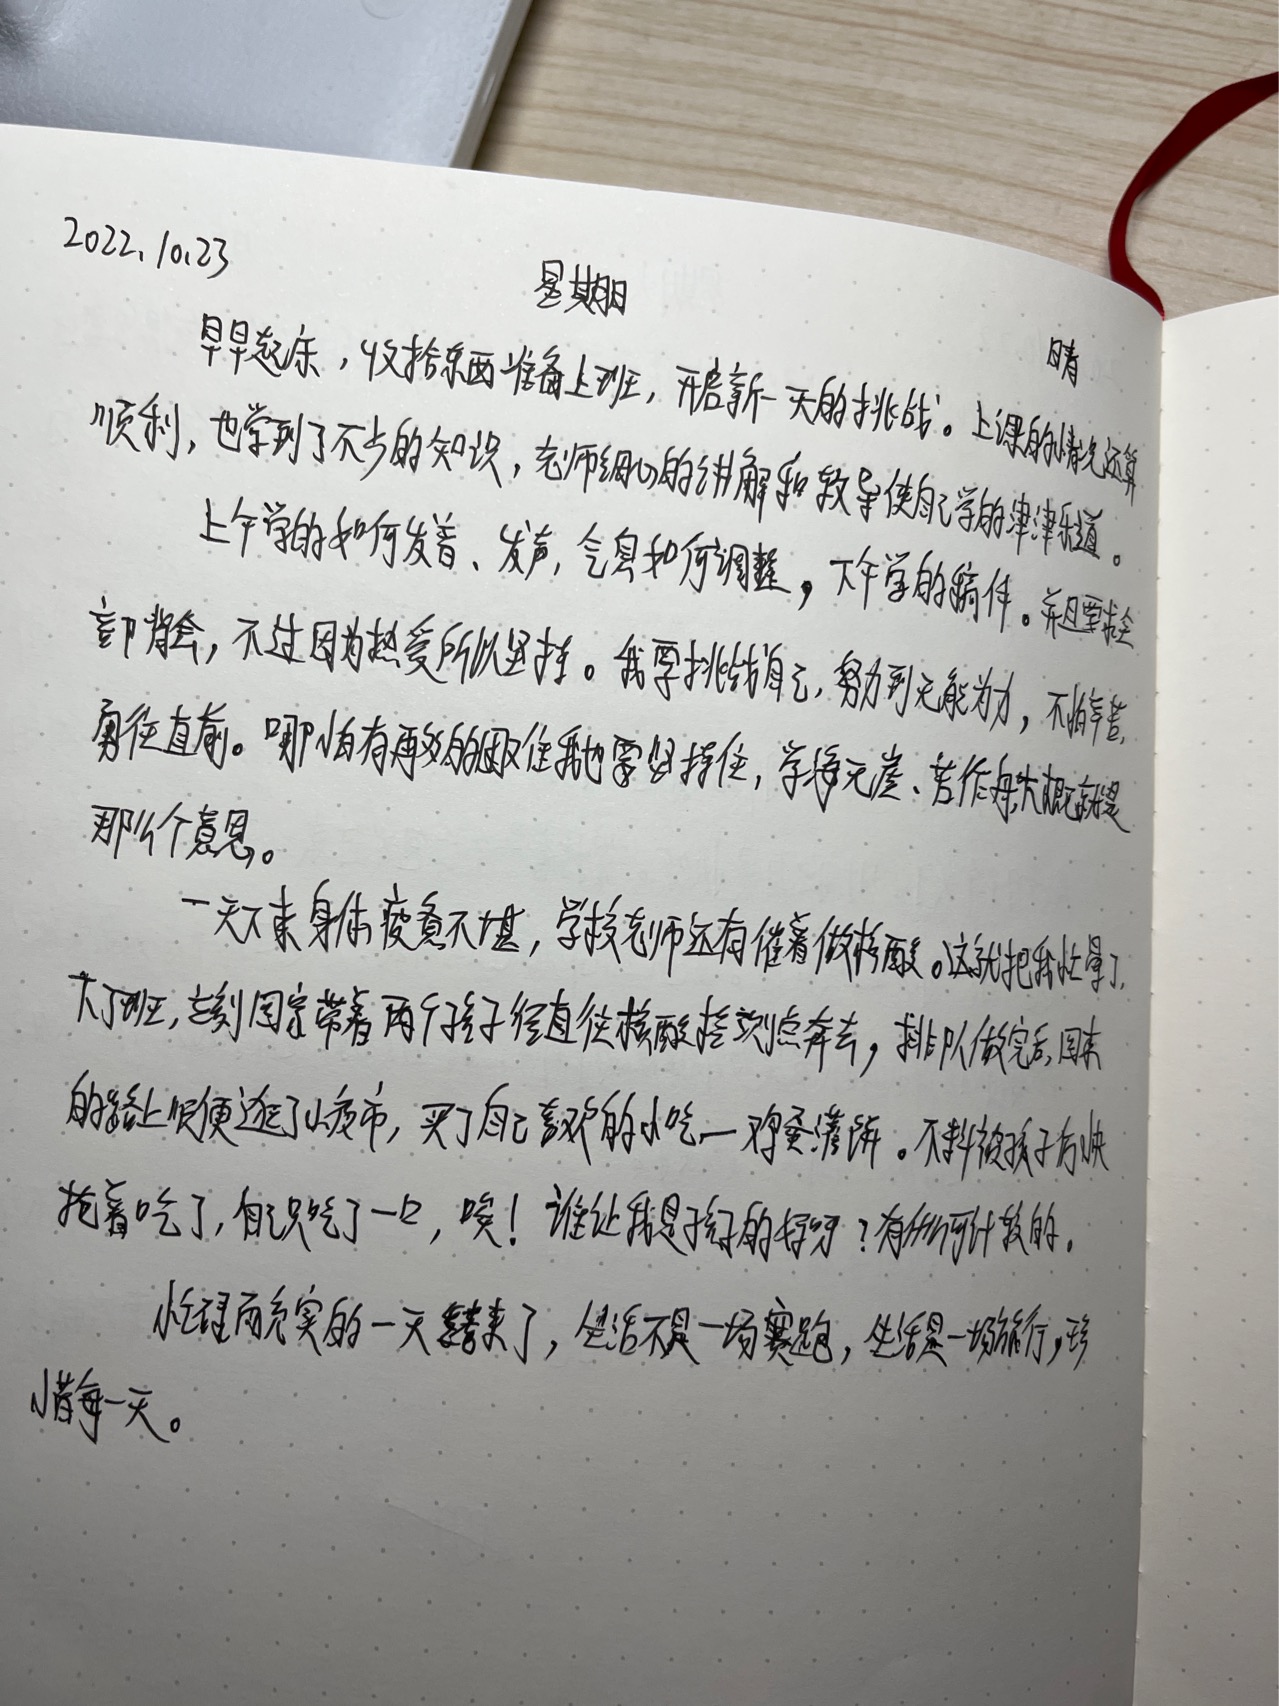 2022.10.23
星期日
晴
早早起床，收拾东西准备上班，开启新一天的挑战。上课的情况还算
顺利，也学到了不少的知识，老师细心的讲解和教导使自己学的津津乐道。
上午学的如何发音、发声，气息如何调整，下午学的稿件。并且要求全
部背会，不过因为热爱所以坚持。我要挑战自己，努力到无能为力，不怕辛苦，
勇往直前。哪怕有再多的困难住我也要坚持住，学海无崖、苦作舟大概就是
那么个意思。
一天下来身体疲惫不堪，学校老师还有催着做核酸。这就把我忙晕了，
下了班，立刻回家带着两个孩子径直往核酸检测点奔去，排队做完后，回来
的路上顺便逛了小夜市，买了自己喜欢的小吃—鸡蛋灌饼。不料被孩子
抢着吃了，自己只吃了一口，唉！谁让我是孩子的好呀？有什么可计较的。
忙碌而充实的一天结束了，生活不是一场赛跑，生活是一场旅行，珍
惜每一天。